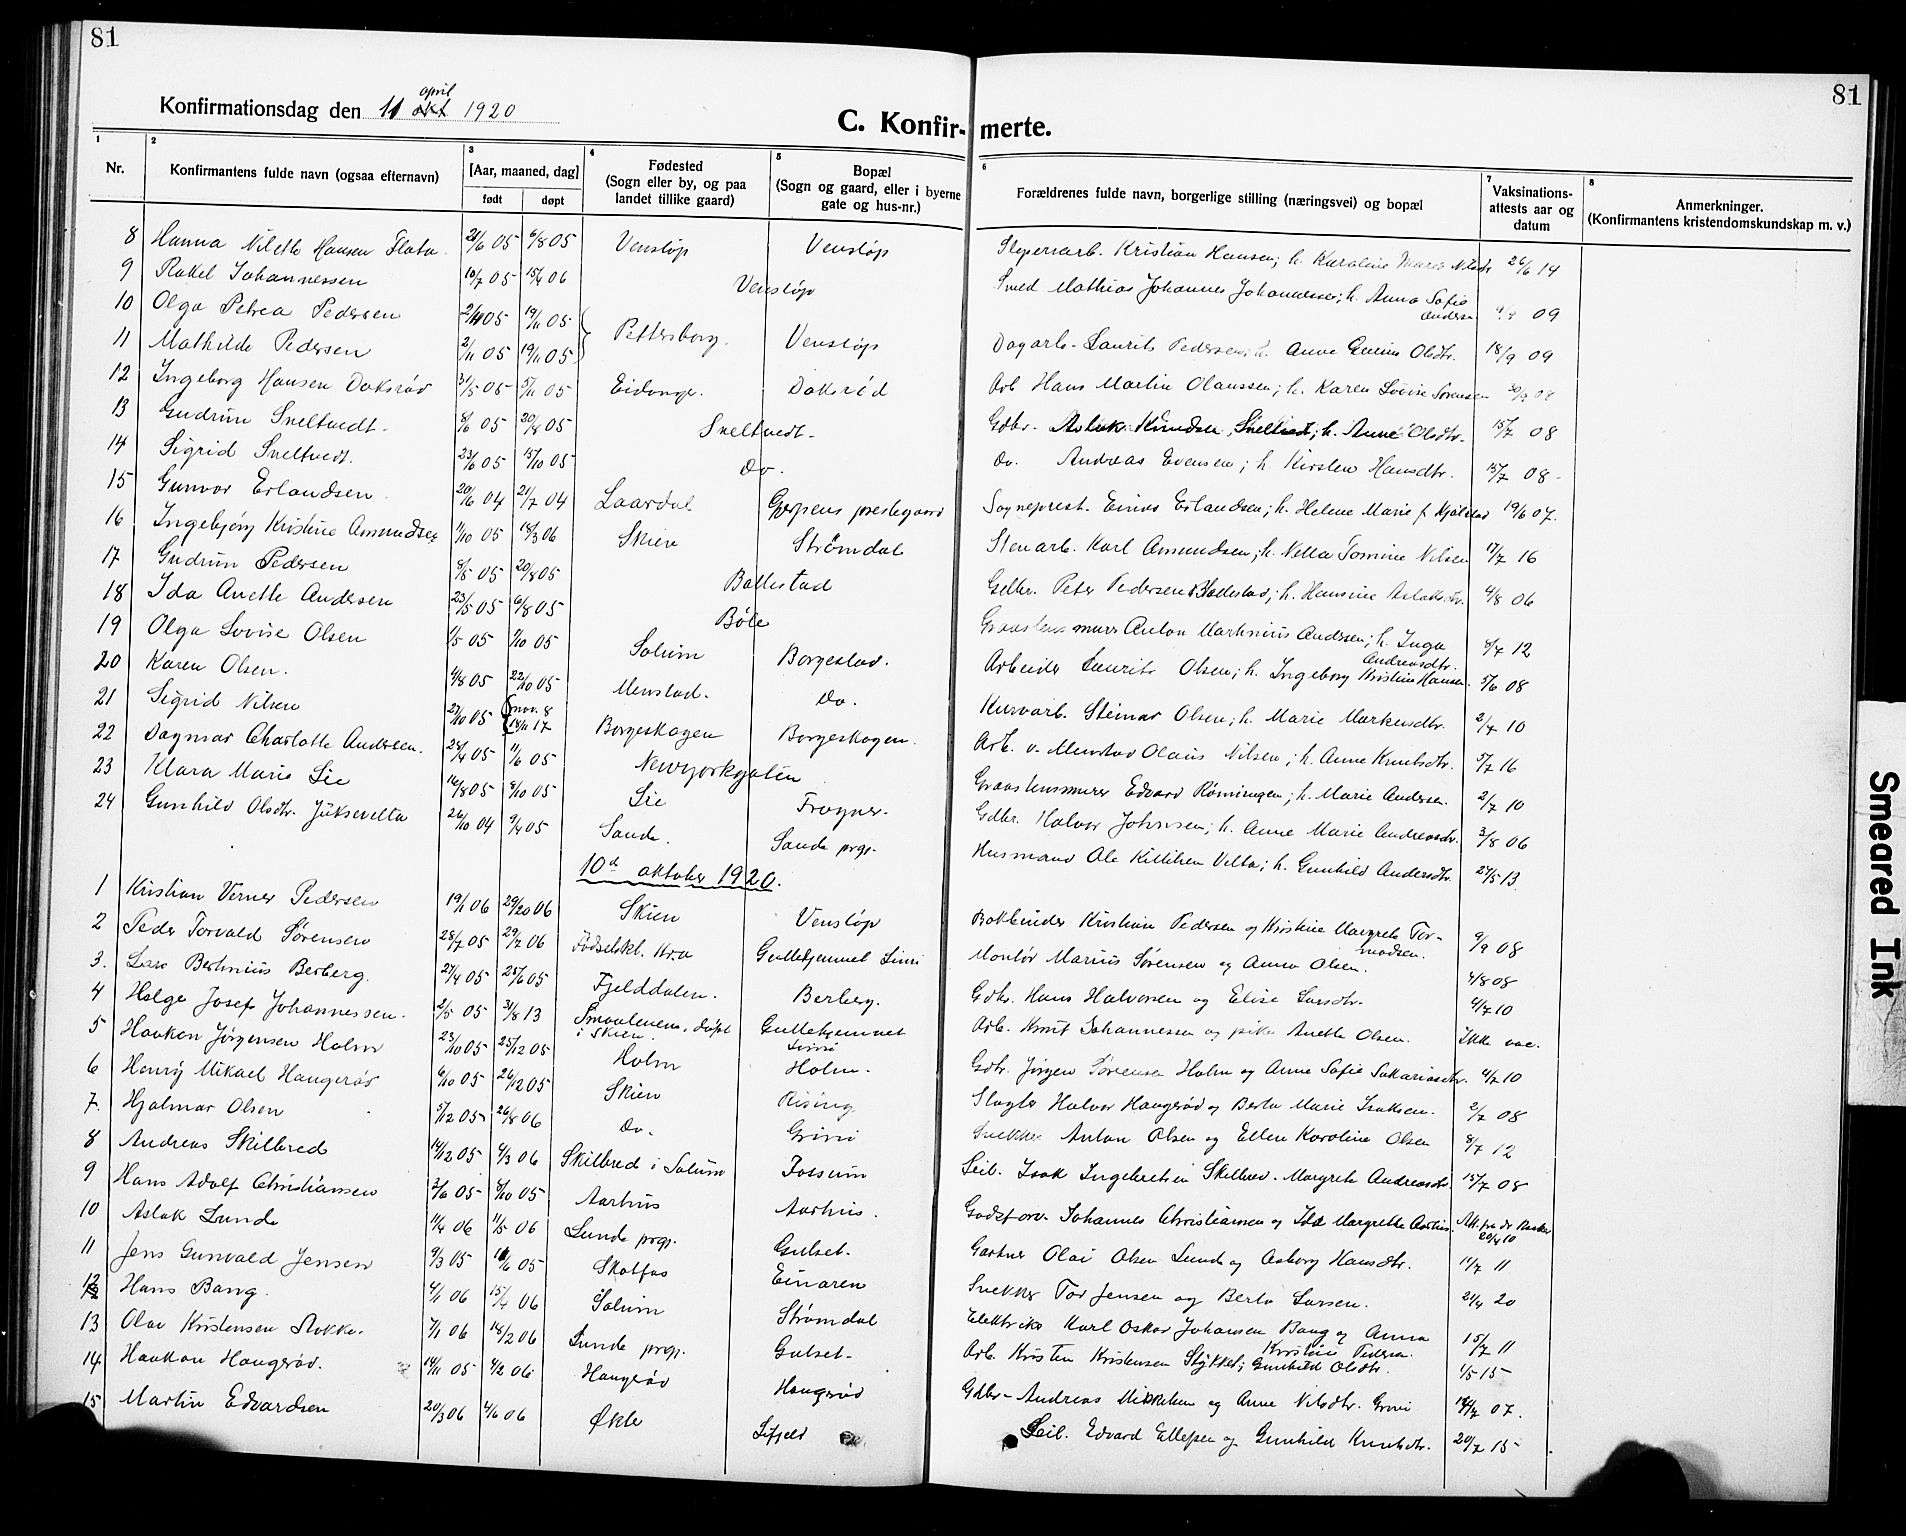 81
81
Konfirmationsdag den 11 april okt 1920
C. Konfir- merte.
1 Nr.
2 Konfirmantens fulde navn (ogsaa efternavn)
3 [Aar, maaned, dag] født døpt
4 Fødested (Sogn eller by, og paa landet tillike gaard)
5 Bopæl (Sogn og gaard, eller i byerne gate og hus-nr.)
6 Forældrenes fulde navn, borgerlige stilling (næringsvei) og bopæl
7 Vaksinations-attests aar og datum
8 Anmerkninger. (Konfirmantens kristendomskundskap m. v.)
8 Hanna Nilette Hansen Flata 21/6 05 6/8 05 Venstøp Venstøp Sliperiarb. Kristian Hansen; h. Karoline Marie 26/6 14
9 Rakel Johannessen 10/7 05 15/4 06 Venstøp Smed Mathias Johannes Johannessen; h. Anna Sofie Andersen 09
10 Olga Petrea Pedersen 2/11 05 19/11 05
11 Mathilde Pedersen 2/11 05 19/11 05 Pettersborg. Venstøp Dagarb. Laurits Pedersen; h. Anne Olsdtr. 18/9 09
12 Ingeborg Hansen Doksrød 31/5 05 5/11 05 Eidanger. Doksrød Arb Hans Martin Olaussen; h. Karen Lovise Sørensen 30/9 08
13 Gudrun Sneltvedt. 8/6 05 20/8 05 Sneltvedt- Gdbr. Aslak Knudsen Sneltvedt; h. Anne Olsdtr. 15/7 08
14 Sigrid Sneltvedt. 23/6 05 15/10 05 Do. Do. Andreas Evensen; h. Kirsten Hansdtr. 15/7 08
15 Gunvor Erlandsen. 20/6 04 21/7 04 Laardal Gjerpens prestegaard Sogneprest. Einar Erlandsen; h. Helene Marie f. Kjølstad 19/6 07.
16 Ingebjørg Kristine Amundsen 1/10 05 18/3 06 Skien Strømdal Stenarb. Karl Amundsen; h. Netta Tomine Nilsen 17/7 16
17 Gudrun Pedersen 8/5 05 20/8 05 Ballestad Gdbr. Peter Pedersen Ballestad; h. Hansine Aslaksdtr. 4/8 06
18 Ida Anette Andersen 23/5 05 6/8 05 Bøle Graastensmurer Anton Martinius Andersen; h. Inga Andreasdtr. 9/7 12
19 Olga Lovise Olsen 1/5 05 1/10 05 Solum Borgestad. Arbeider Laurits Olsen; h. Ingeborg Kristine Hansen. 5/6 08
20 Karen Olsen. 4/8 05 22/10 05 Menstad. Do. Kurvarb. Steinar Olsen; h. Marie Markusdtr. 2/7 10
21 Sigrid Nilsen 27/10 05 nov. 8 18/11 17 Borgeskogen Borgeskogen. Arb. v. Menstad Olaus Nilsen; h. Anne Knutsdtr. 5/7 16
22 Dagmar Charlotte Andersen. 28/4 05 11/6 05 Newyorkgaten Graastensmurer Edvard Rønningen; h. Marie Andersen. 2/7 10
23 Klara Marie Lie 16/8 05 8/10 05 Lie Frogner. Gdbr. Halvor Johnsen; h. Anne Marie Andreasdtr. 3/8 06
24 Gunhild Olsdtr. Juksevelta 26/10 04 9/4 05 Sande. Sande prgj. Husmand Ole Kittilsen Velta; h. Gunhild Andersdtr. 27/5 13.
10d oktober 1920.
1 Kristian Verner Pedersen 19/1 06 29/20 06 Skien Venstøp Bokbinder Kristian Pedersen og Kristine Margrete Tormodsen. 9/9 08
2 Peder Torvald Sørensen 28/7 05 29/7 06 Fødselskl. Kr.a Guttehjemmet Limi Montør Marius Sørensen og Anna Olsen. 4/8 08
3. Lars Berthinius Berberg. 27/4 05 25/6 05 Fjelddalen. Berberg. Gdbr. Hans Halvorsen og Elise Larsdtr. 4/7 10
4 Helge Josef Johannessen. 2/5 05 31/8 13 Smaalenene, døpt i Skien. Guttehjemmet Limi Arb. Knut Johannessen og pike Anette Olsen. Ikke vac.
5 Haakon Jørgensen Holm 23/10 05 25/12 05 Holm Holm. Gdbr. Jørgen Sørensen Holm og Anne Sofie Sakariasdtr. 4/7 10
6 Henry Mikael Haugerød 6/10 05 26/12 05 Skien Rising Slagter Halvor Haugerød og Berta Marie Isaksen. 2/7 08
7. Hjalmar Olsen 5/12 05 26/8 06 Do. Grini Snekker Anton Olsen og Ellen Karoline Olsen 8/7 12
8 Andreas Skilbred 14/12 05 4/3 06 Skilbred i Solum Fossum Seib. Isak Ingebretsen Skilbred. Margrete Andreasdtr. 15/7 08
9 Hans Adolf Christiansen 2/6 05 8/10 05 Aarhus Aarhus. Godsforv. Johannes Christiansen og Ida Margrethe Aarhus. Att. fra dr. 20/4 10
10 Aslak Lunde 11/4 06 11/5 06 Lunde prgj. Gulset. Gartner Olai Olsen Lund og Asborg Hansdtr. 11/7 11
11 Jens Gunvald Jensen 9/3 05 11/6 05 Skotfos Einaren Snekker Tor Jensen og Berta Larsen. 21/4 20
12 Hans Bang. 4/1 06 15/4 06 Solum Strømdal Elektriker Karl Oskar Johansen Bang og Anna Kristine Pedersen. 15/7 11
13 Olav Kristensen Stokke. 7/1 06 18/2 06 Lunde prgj. Gulset- Arb. Kristen Kristensen; Gunhild Olsdtr. 1/5 15
14 Haakon Haugerød. 14/11 05 4/2 06 Haugerød Haugerød Gdbr- Andreas Mikkelsen og Anne Nilsdtr. Grini 14/7 07.
15 Martin Edvardsen 20/3 06 4/6 06 Økle Lifjeld Seib. Edvard Ellefsen og Gunhild Knutsdtr. 20/7 15
Smeared Ink